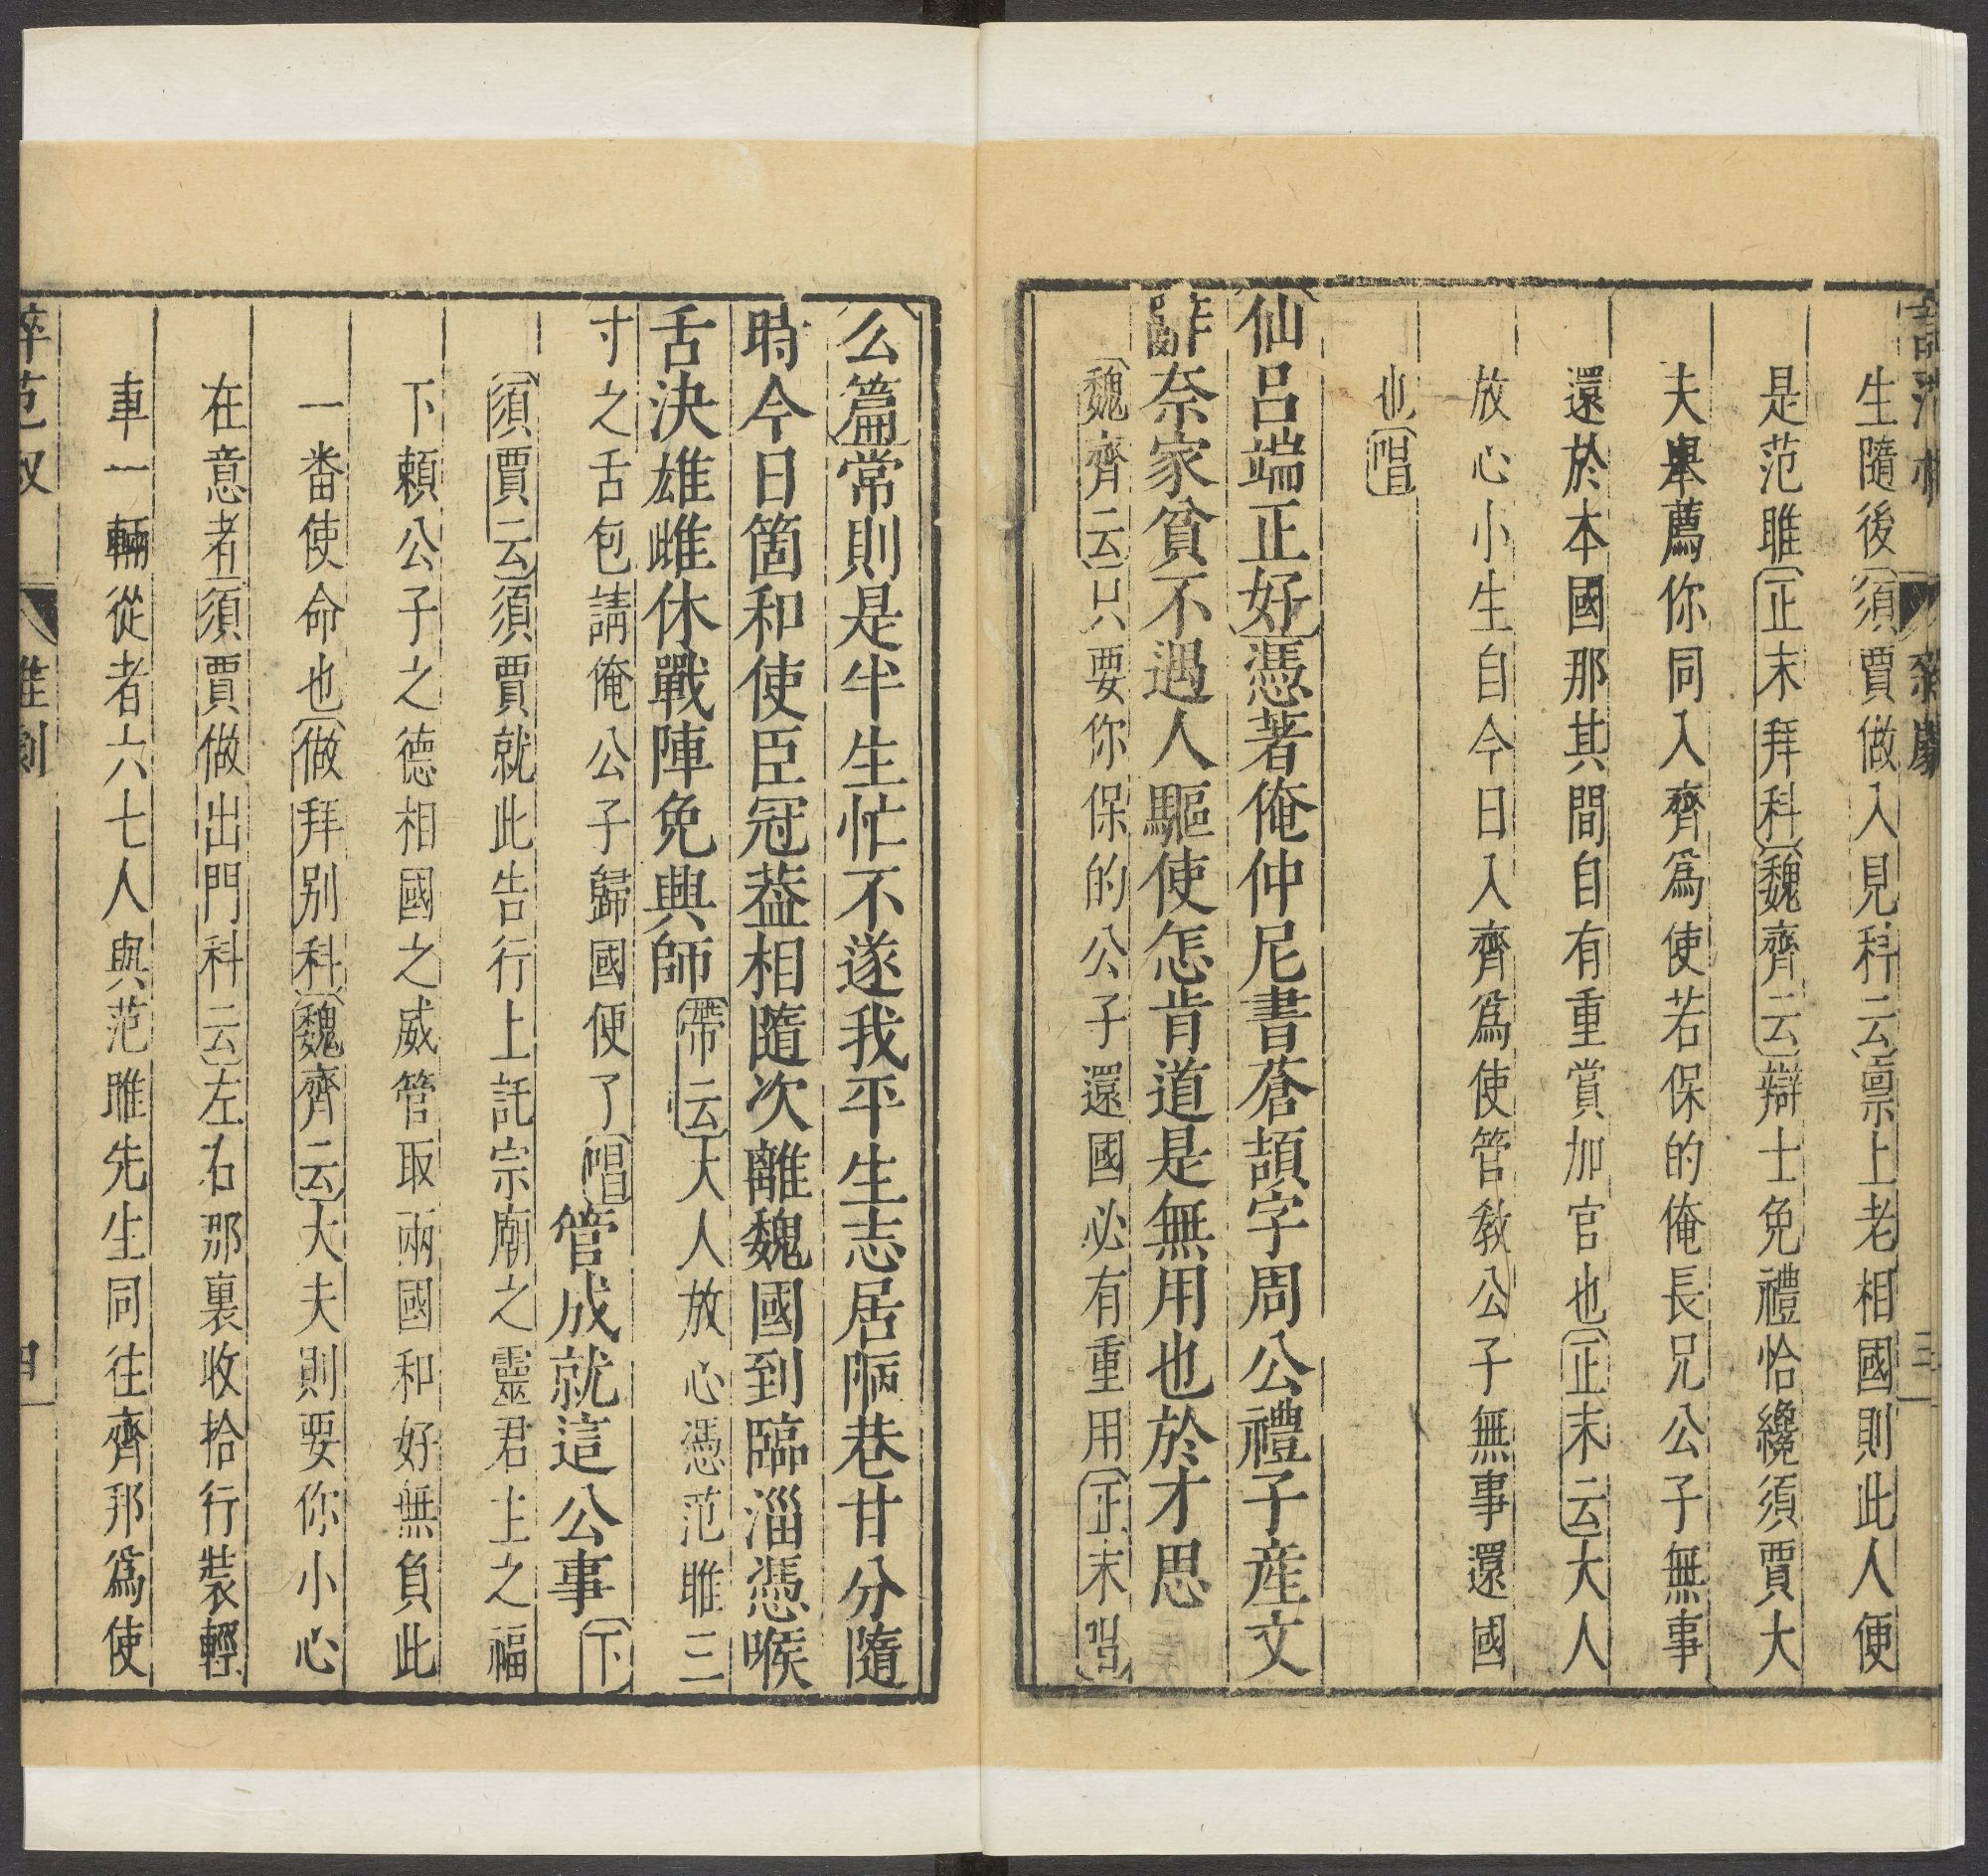 生隨後須賈做入見科云禀上老相國則此人便
是范雎正末拜科魏齊云辯士免禮恰纔須賈大
夫舉薦你同入齊爲使若保的俺長兄公子無事
還於本國那其間自有重賞加官也正末云大人
放心小生自今日入齊爲使管教公子無事還國
也唱
仙呂端正好憑著俺仲尼書蒼頡字周公禮子產文
辭奈家貧不遇人驅使怎肯道是無用也於才思
魏齊云只要你保的公子還國必有重用正末唱
么篇常則是半生忙不遂我平生志居陋巷甘分隨
時今日箇和使臣冠蓋相隨次離魏國到臨淄憑喉
舌決雄雌休戰陣免興師帶云大人放心憑范雎三
寸之舌包請俺公子歸國便了唱管成就這公事下
須賈云須賈就此告行上託宗廟之靈君上之福
下賴公子之德相國之威管取兩國和好無負此
一番使命也做拜别科魏齊云大夫則要你小心
在意者須賈做出門科云左右那裏收拾行裝輕
車一輛從者六七人與范雎先生同往齊邦爲使